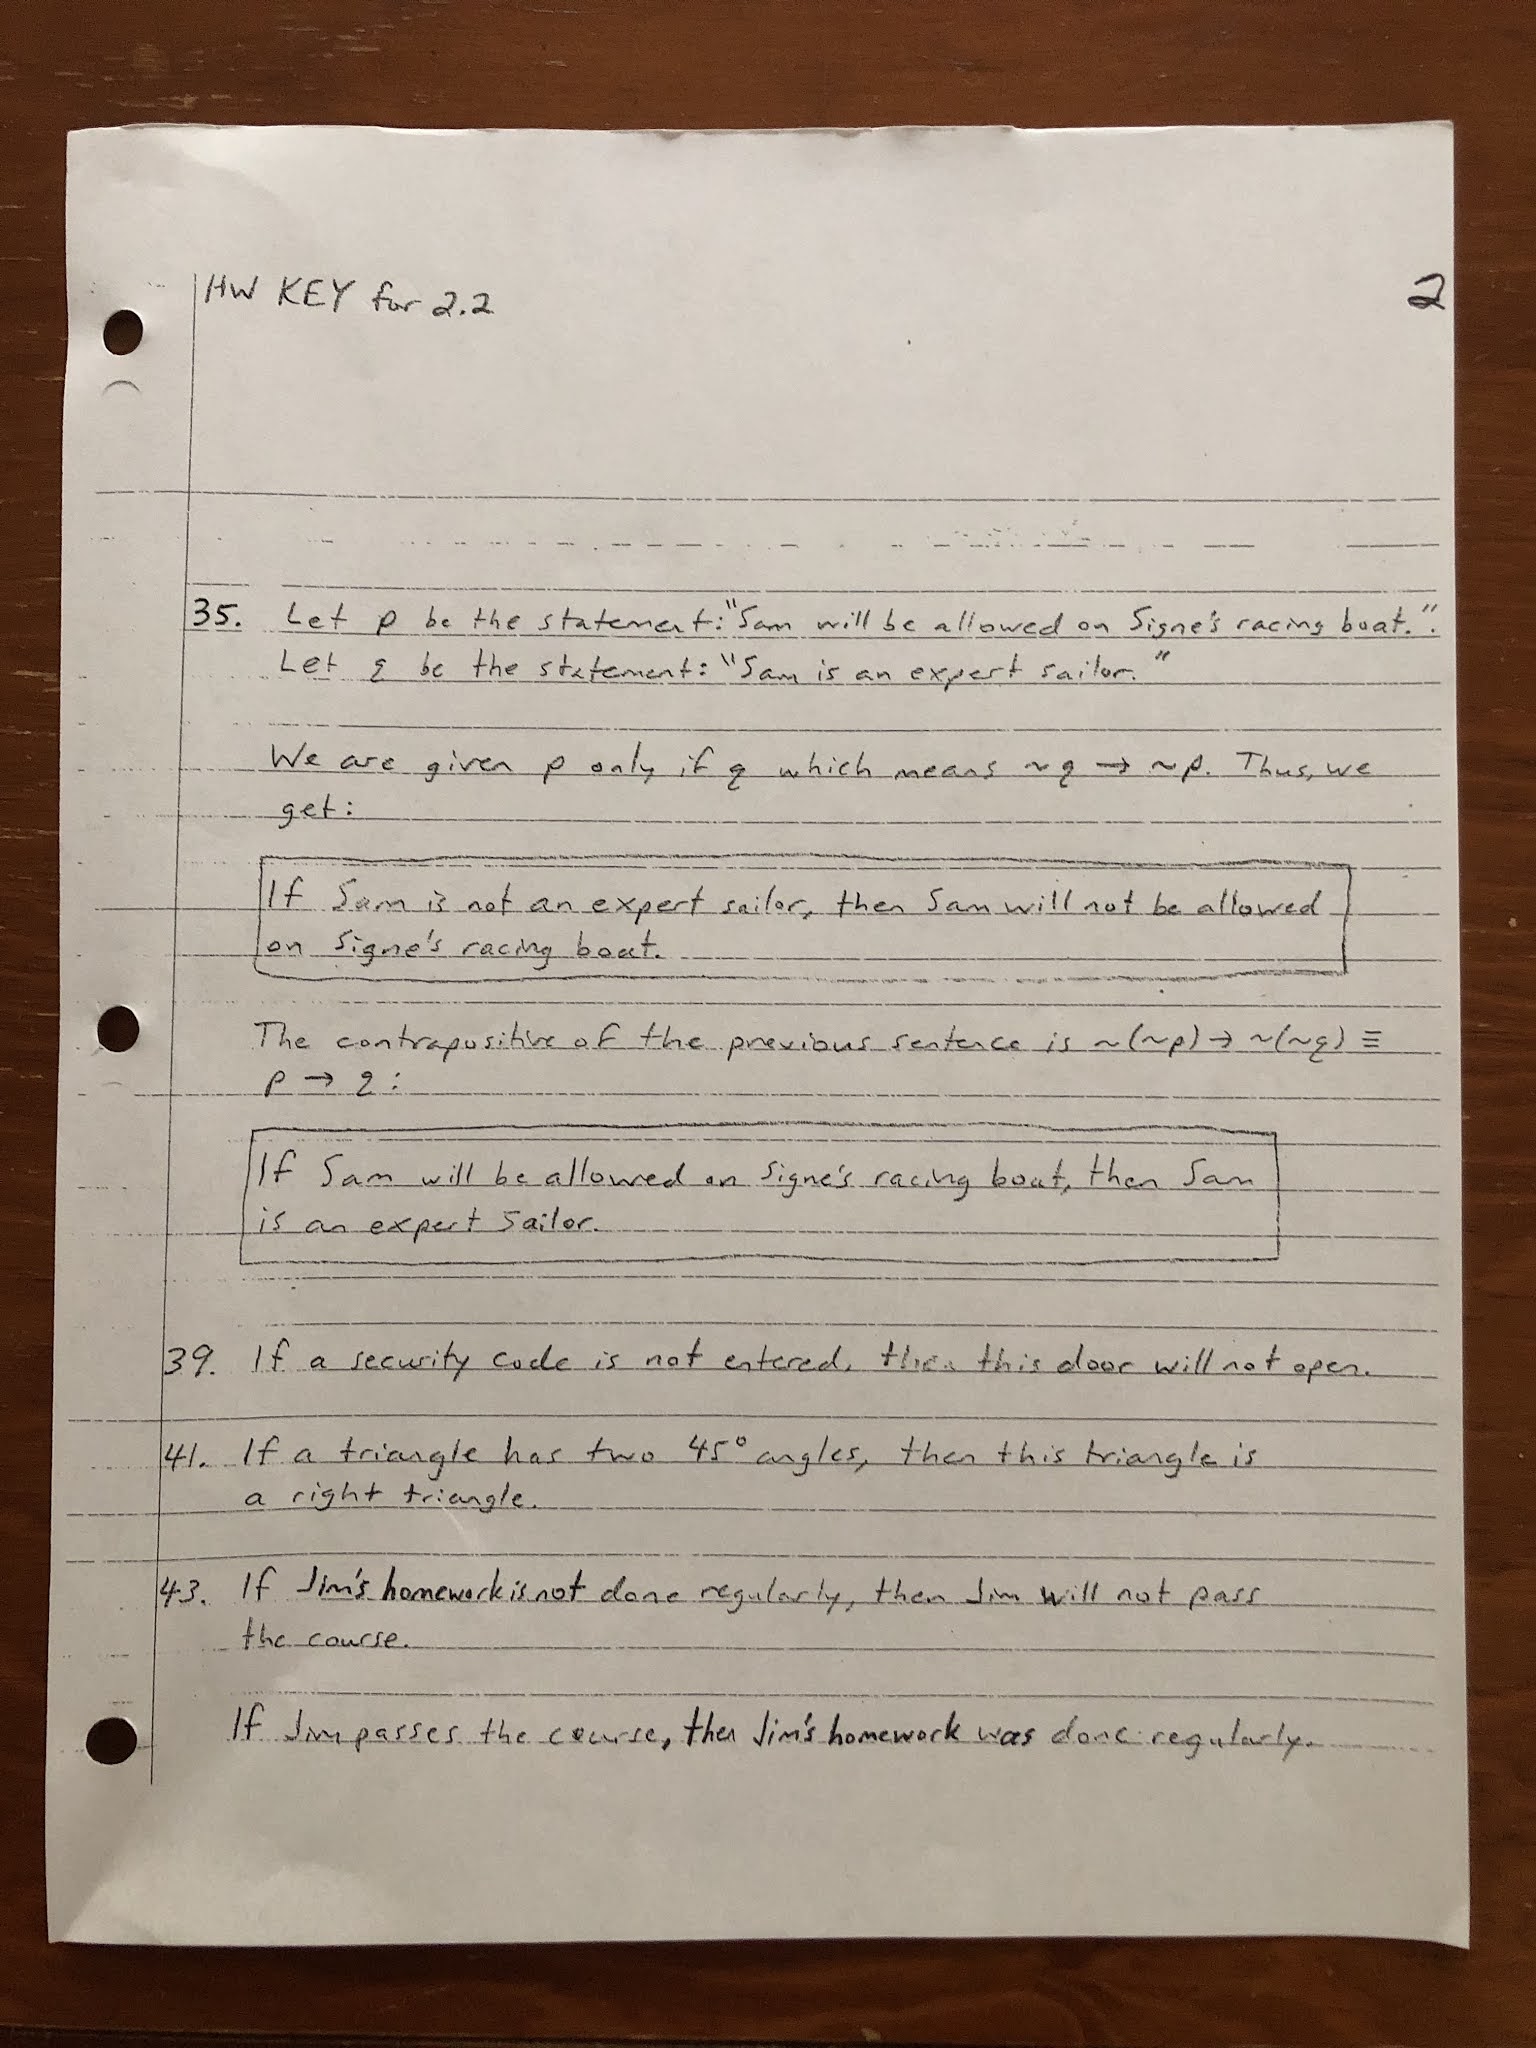 HW KEY for 2.2
2
35. Let p be the statement: "Sam will be allowed on Signe's racing boat.".
Let q be the statement: "Sam is an expert sailor."
We are given p only if q which means ~q → ~p. Thus, we
get:
If Sam is not an expert sailor, then Sam will not be allowed
on Signe's racing boat.
The contrapositive of the previous sentence is ~(~p) → ~(~q) ≡
p → q:
If Sam will be allowed on Signe's racing boat, then Sam
is an expert sailor.
39. If a security code is not entered, then this door will not open.
41. If a triangle has two 45° angles, then this triangle is
a right triangle.
43. If Jim's homework is not done regularly, then Jim will not pass
the course.
If Jim passes the course, then Jim's homework was done regularly.